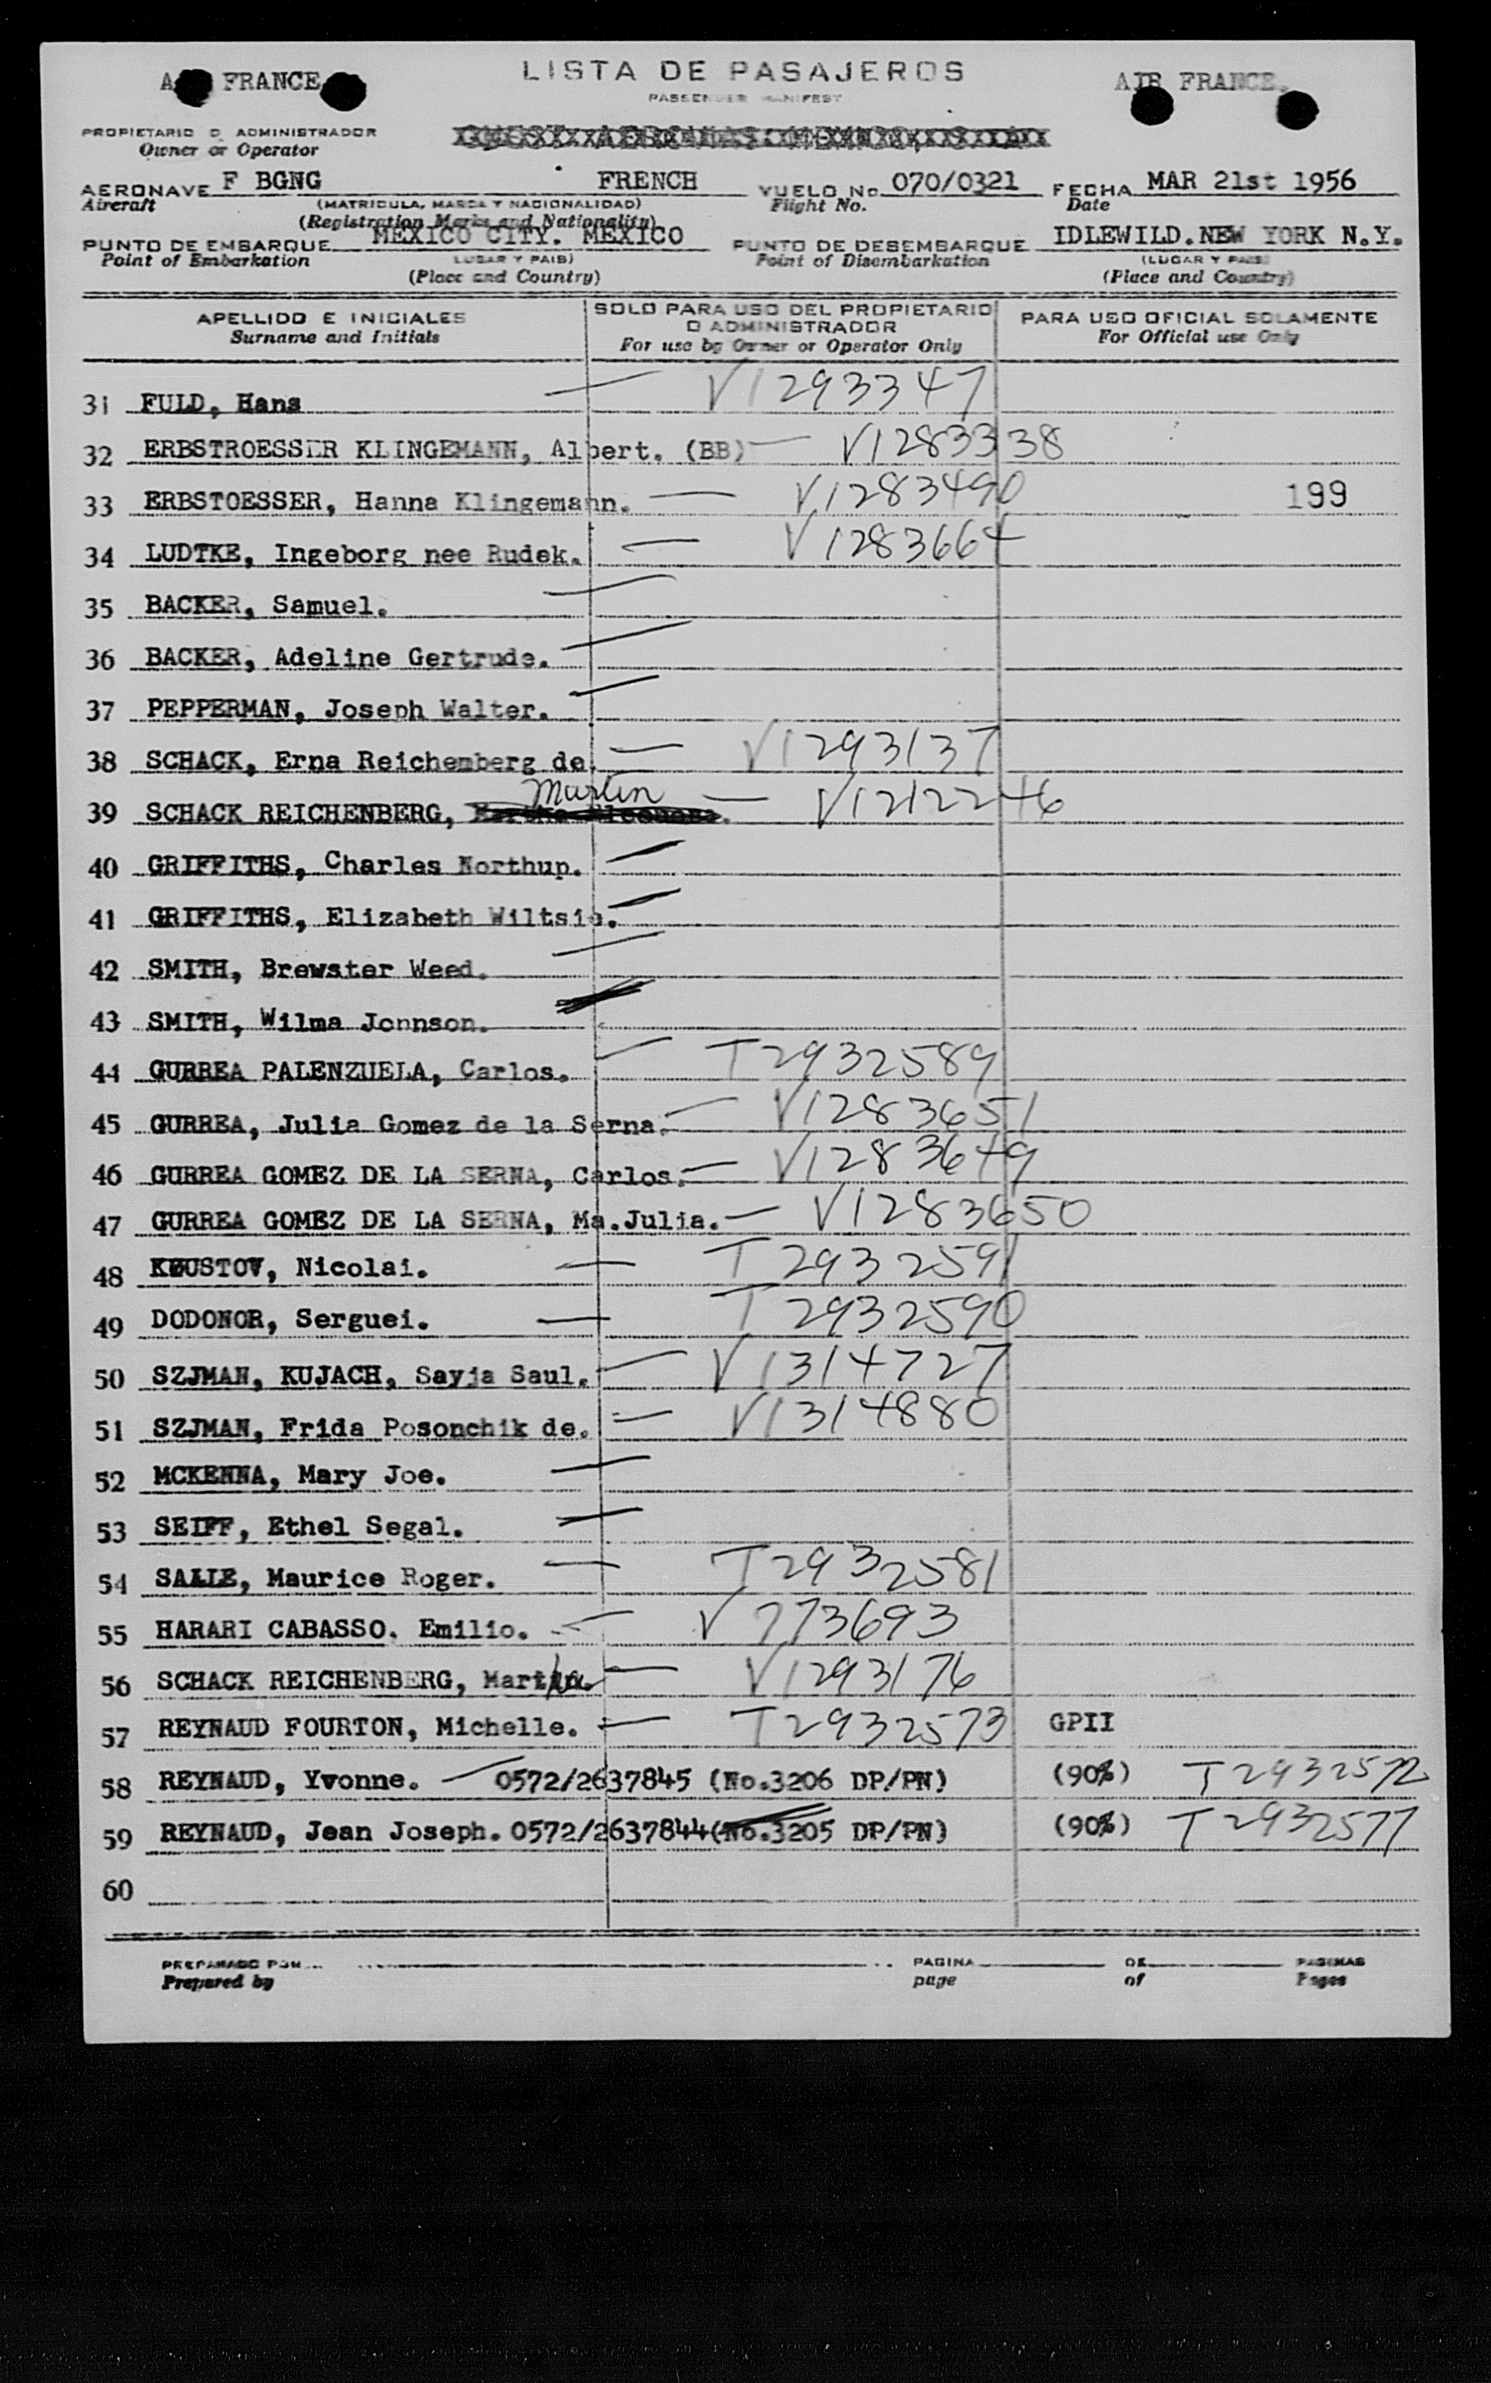 AIR FRANCE
LISTA DE PASAJEROS
PASSENGER MANIFEST
AIR FRANCE.
PROPIETARIO O ADMINISTRADOR
Owner or Operator
AERONAVE F BGNG FRENCH VUELO No. 070/0321 FECHA MAR 21st 1956
Aircraft (MATRICULA, MARCA Y NACIONALIDAD) Flight No. Date
(Registration Marks and Nationality)
PUNTO DE EMBARQUE MEXICO CITY. MEXICO PUNTO DE DESEMBARQUE IDLEWILD.NEW YORK N.Y.
Point of Embarkation (LUGAR Y PAIS) Point of Disembarkation (LUGAR Y PAIS)
(Place and Country) (Place and Country)
APELLIDO E INICIALES
Surname and Initials
SOLO PARA USO DEL PROPIETARIO
O ADMINISTRADOR
For use by Owner or Operator Only
PARA USO OFICIAL SOLAMENTE
For Official use Only
31 FULD, Hans V1293347
32 ERBSTROESSER KLINGEMANN, Albert. (BB) V1283338
33 ERBSTOESSER, Hanna Klingemann. V1283490 199
34 LUDTKE, Ingeborg nee Rudek. V1283664
35 BACKER, Samuel.
36 BACKER, Adeline Gertrude.
37 PEPPERMAN, Joseph Walter.
38 SCHACK, Erna Reichemberg de. V1293137
39 SCHACK REICHENBERG, Martin V1212246
40 GRIFFITHS, Charles Northup.
41 GRIFFITHS, Elizabeth Wiltsie.
42 SMITH, Brewster Weed.
43 SMITH, Wilma Jonnson.
44 GURREA PALENZUELA, Carlos. T2932589
45 GURREA, Julia Gomez de la Serna. V1283651
46 GURREA GOMEZ DE LA SERNA, Carlos. V1283649
47 GURREA GOMEZ DE LA SERNA, Ma.Julia. V1283650
48 KOUSTOV, Nicolai. T2932591
49 DODONOR, Serguei. T2932590
50 SZJMAN, KUJACH, Sayja Saul. V1314727
51 SZJMAN, Frida Posonchik de. V1314880
52 MCKENNA, Mary Joe.
53 SEIFF, Ethel Segal.
54 SALLE, Maurice Roger. T2932581
55 HARARI CABASSO. Emilio. V773693
56 SCHACK REICHENBERG, Martha V1293176
57 REYNAUD FOURTON, Michelle. T2932573 GPII
58 REYNAUD, Yvonne. 0572/2637845 (No.3206 DP/PN) (90%) T2932572
59 REYNAUD, Jean Joseph. 0572/2637844(No.3205 DP/PN) (90%) T2932577
60
PREPARADO POR PAGINA DE PAGINAS
Prepared by page of Pages